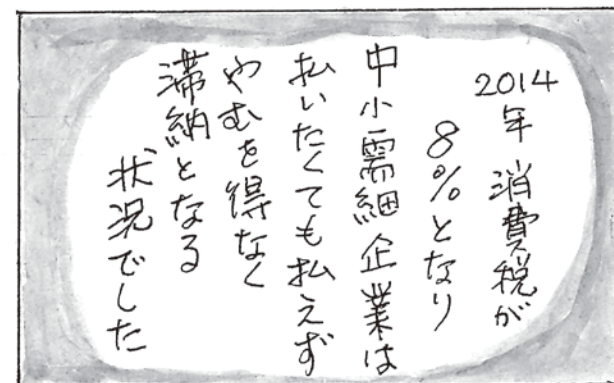 2014年 消費税が
8%となり
中小零細企業は
払いたくても払えず
やむを得なく
滞納となる
状況でした